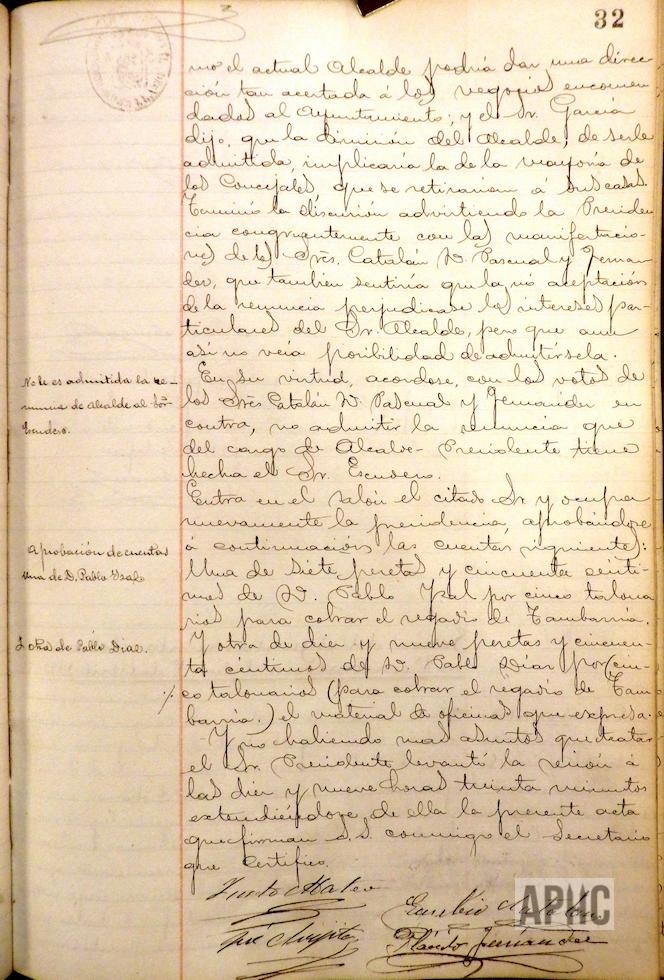 32
mo el actual Alcalde podria dar una direc-
ción tan acertada á los negocios encomen-
dados al Ayuntamiento; y el Sr. García
dijo, que la dimisión del Alcalde, de serle
admitida, implicaría la de la mayoría de
los Concejales, que se retirarian á sus casas.
Terminó la discusión advirtiendo la Presiden-
cia congruentemente con las manifestacio-
nes de los Sres. Catalán D. Pascual y Fernan-
dez, que tambien sentiria que la no aceptación
de la renuncia perjudicase los intereses par-
ticulares del Sr. Alcalde, pero que aun
asi no veía posibilidad de admitírsela.
No le es admitida la re-
nuncia de Alcalde al Sor.
Escudero.
En su virtud, acordose, con los votos de
los Sres Catalán D. Pascual y Fernandez en
contra, no admitir la renuncia que
del cargo de Alcalde-Presidente tiene
hecha el Sr. Escudero.
Entra en el salón el citado Sr. y ocupa
nuevamente la presidencia, aprobándose
á continuación las cuentas siguientes:
Aprobación de cuentas
una de D. Pablo Yzal
Una de siete pesetas y cincuenta cénti-
mos de D. Pablo Yzal por cinco talona-
rios para cobrar el regadío de Tambarría.
Y otra de Pablo Diaz.
Y otra de diez y nueve pesetas y cincuen-
ta céntimos de D. Pablo Díaz por (cin-
co talonarios (para cobrar el regadío de Tam-
barría.) el material de oficinas que expresa.
Y no habiendo mas asuntos que tratar
el Sr. Presidente levantó la sesión á
las diez y nueve horas treinta minutos
extendiéndose de ella la presente acta
que firman S.S. conmigo el Secretario
que certifico.
Justo Mateo
Eusebio
Plácido Fernández
APHC